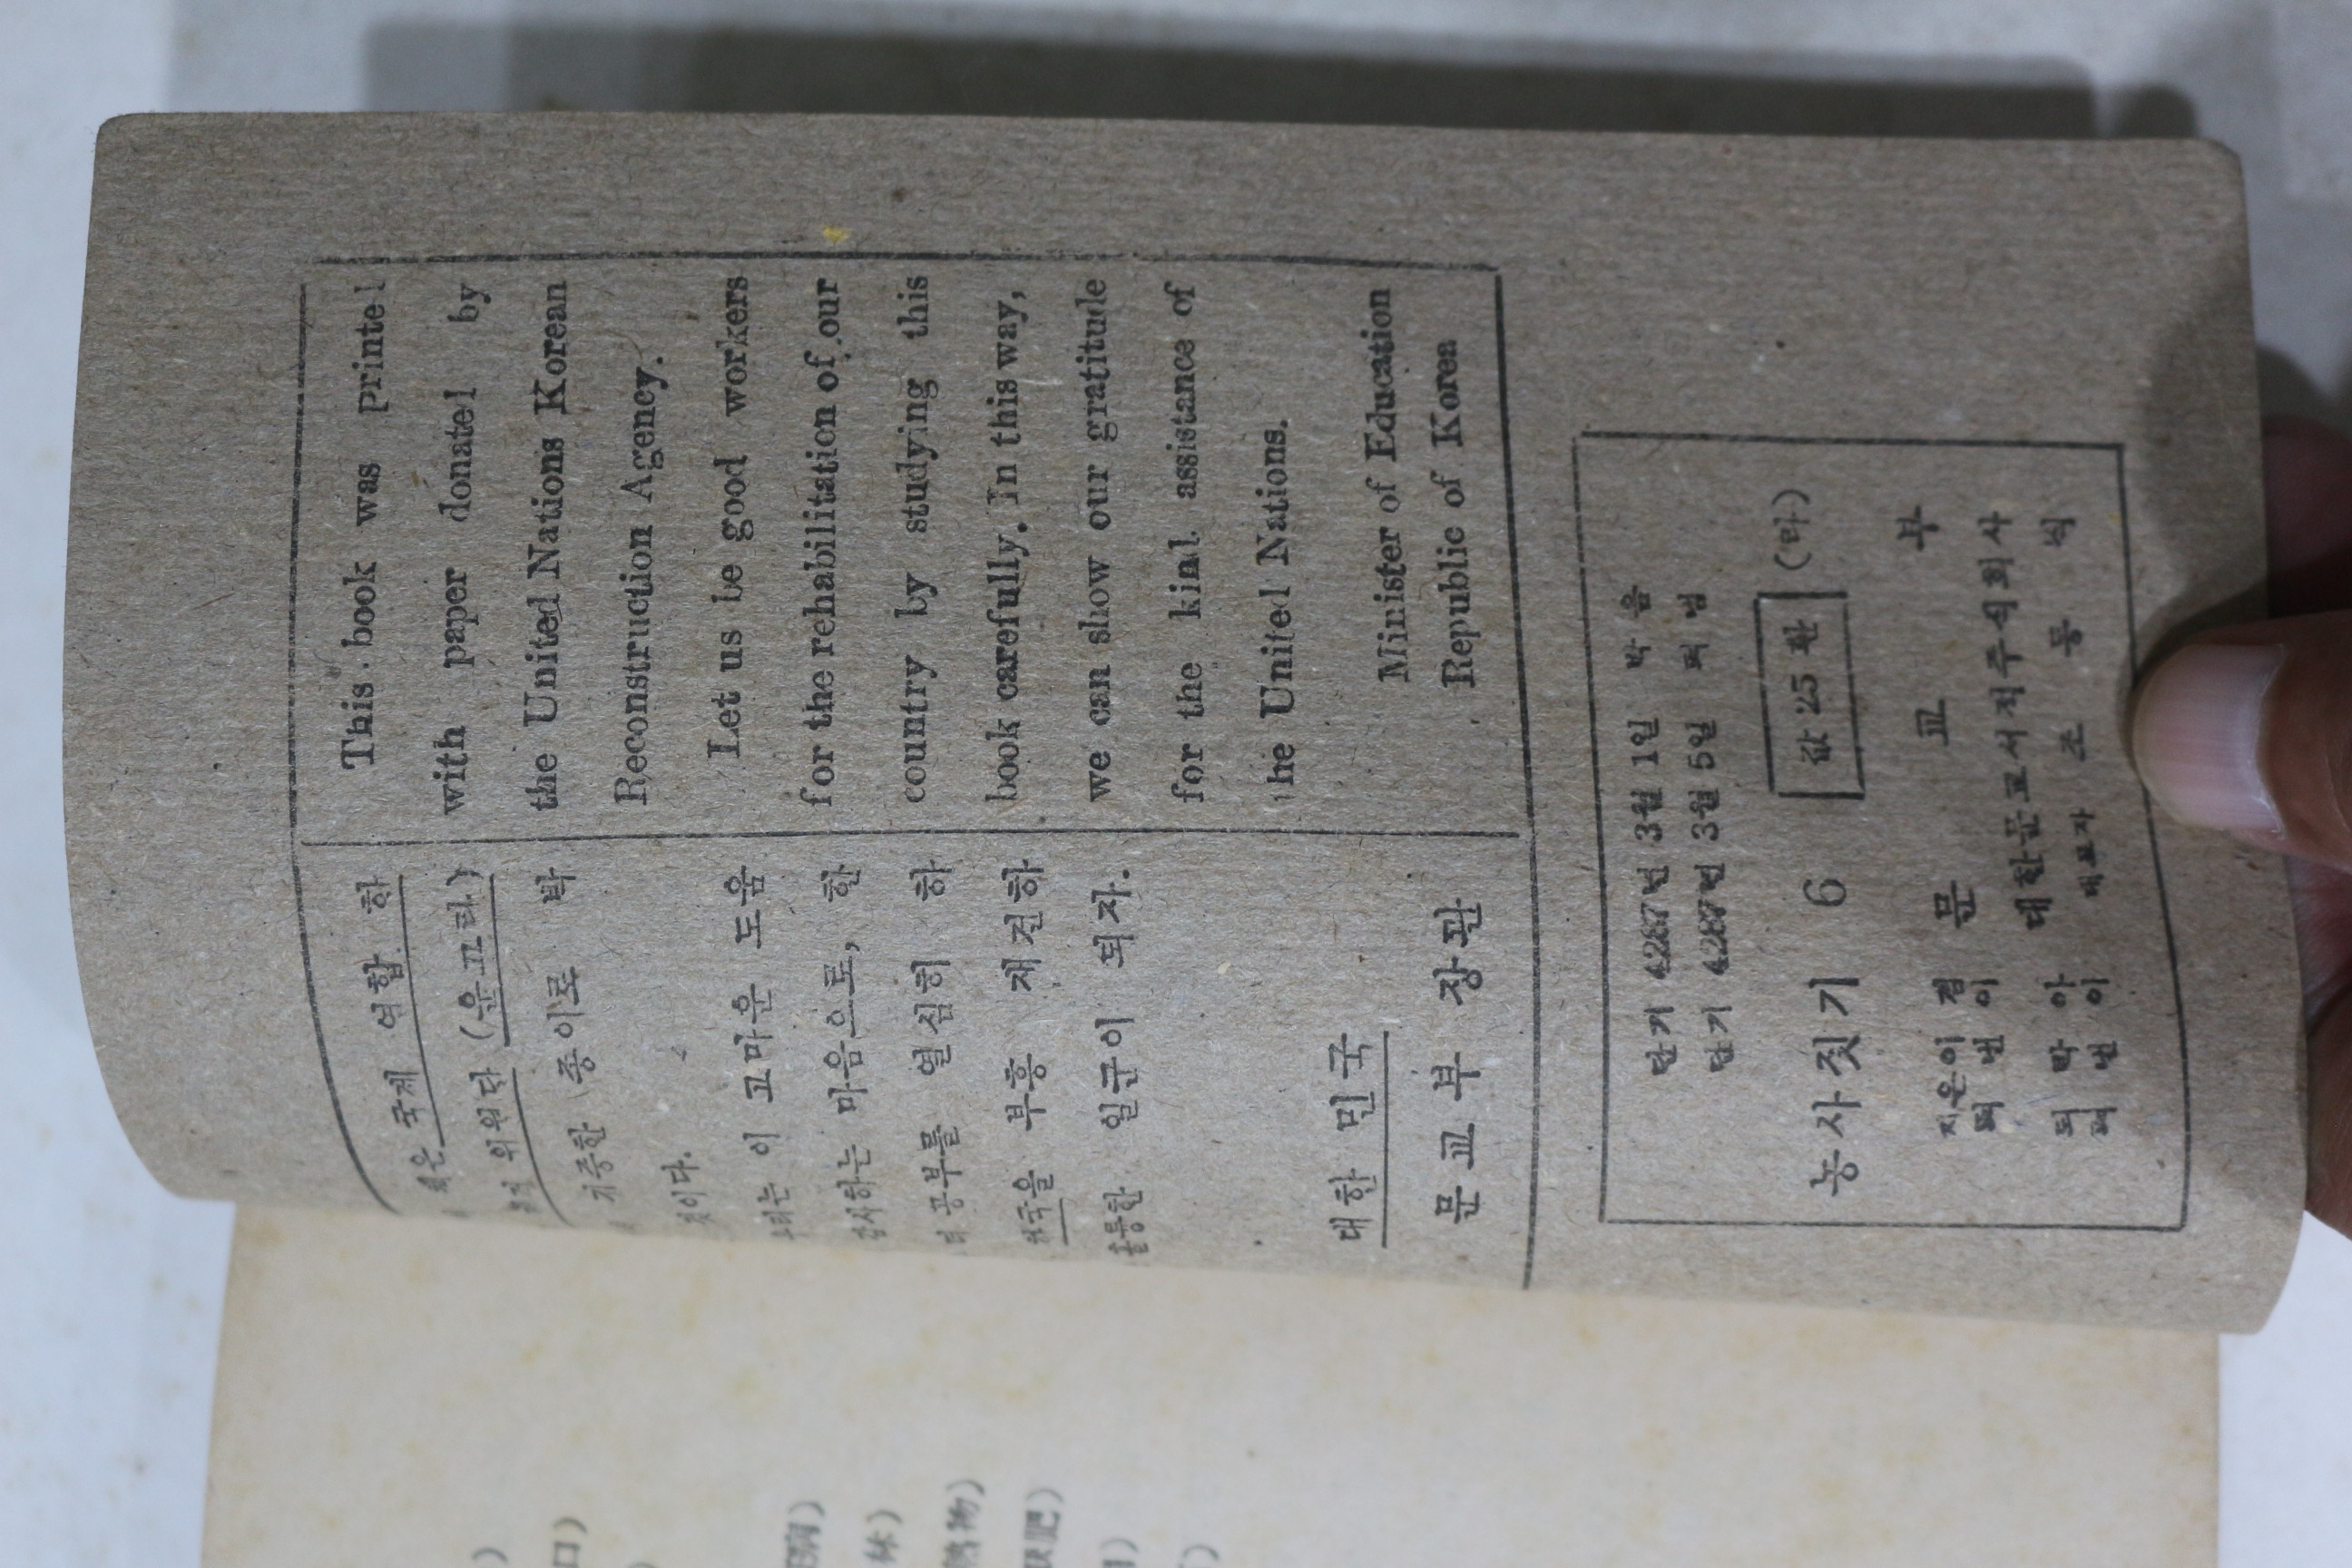 책은 국제 연합 한
위원단 (운끄라)
기증한 종이로 박
것이다.
우리는 이 고마운 도움
감사하는 마음으로, 한
공부를 열심히 하
한국을 부흥 재건하
훌륭한 일군이 되자.
대한 민국
문교부 장관
This book was printed
with paper donated by
the United Nations Korean
Reconstruction Agency.
Let us be good workers
for the rehabilitation of our
country by studying this
book carefully. In this way,
we can show our gratitude
for the kind assistance of
the United Nations.
Minister of Education
Republic of Korea
단기 4287년 3월 1일 박음
단기 4287년 3월 5일 펴냄
농사짓기 6 값 25 환 (라)
지은이 겸 펴낸이 문교부
박아 펴낸이 대한문교서적주식회사
대표자 조동식